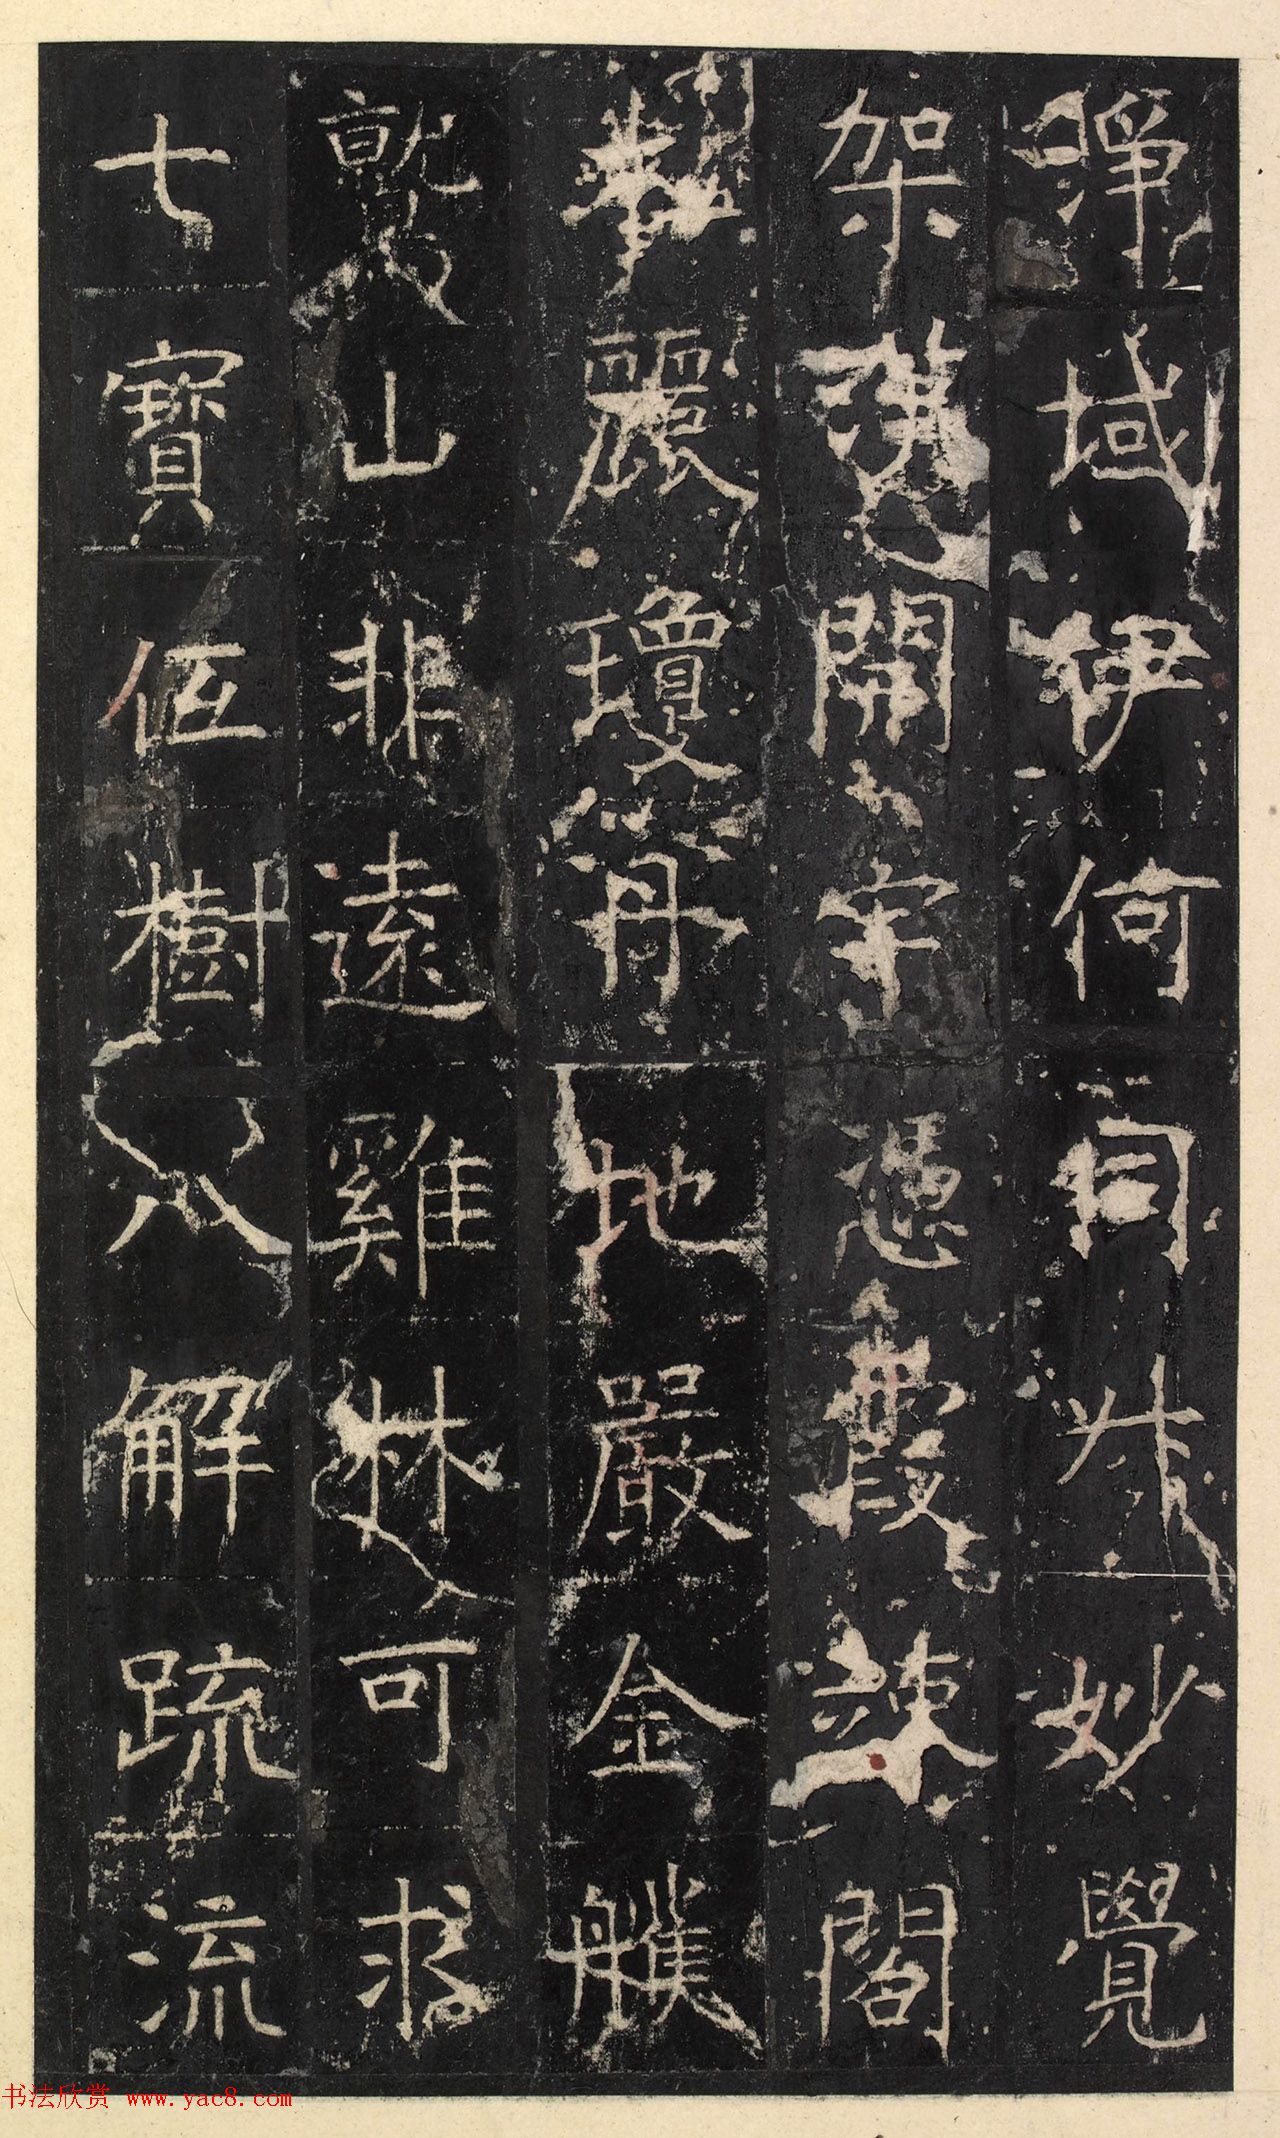 淨域伊何同茲妙覺
架漢開宇憑霞疎閣
搴麗瓊丹地嚴金雘
鷲山非遠雞林可求
七寶伍樹八解疏流
书法欣赏 www.yac8.com